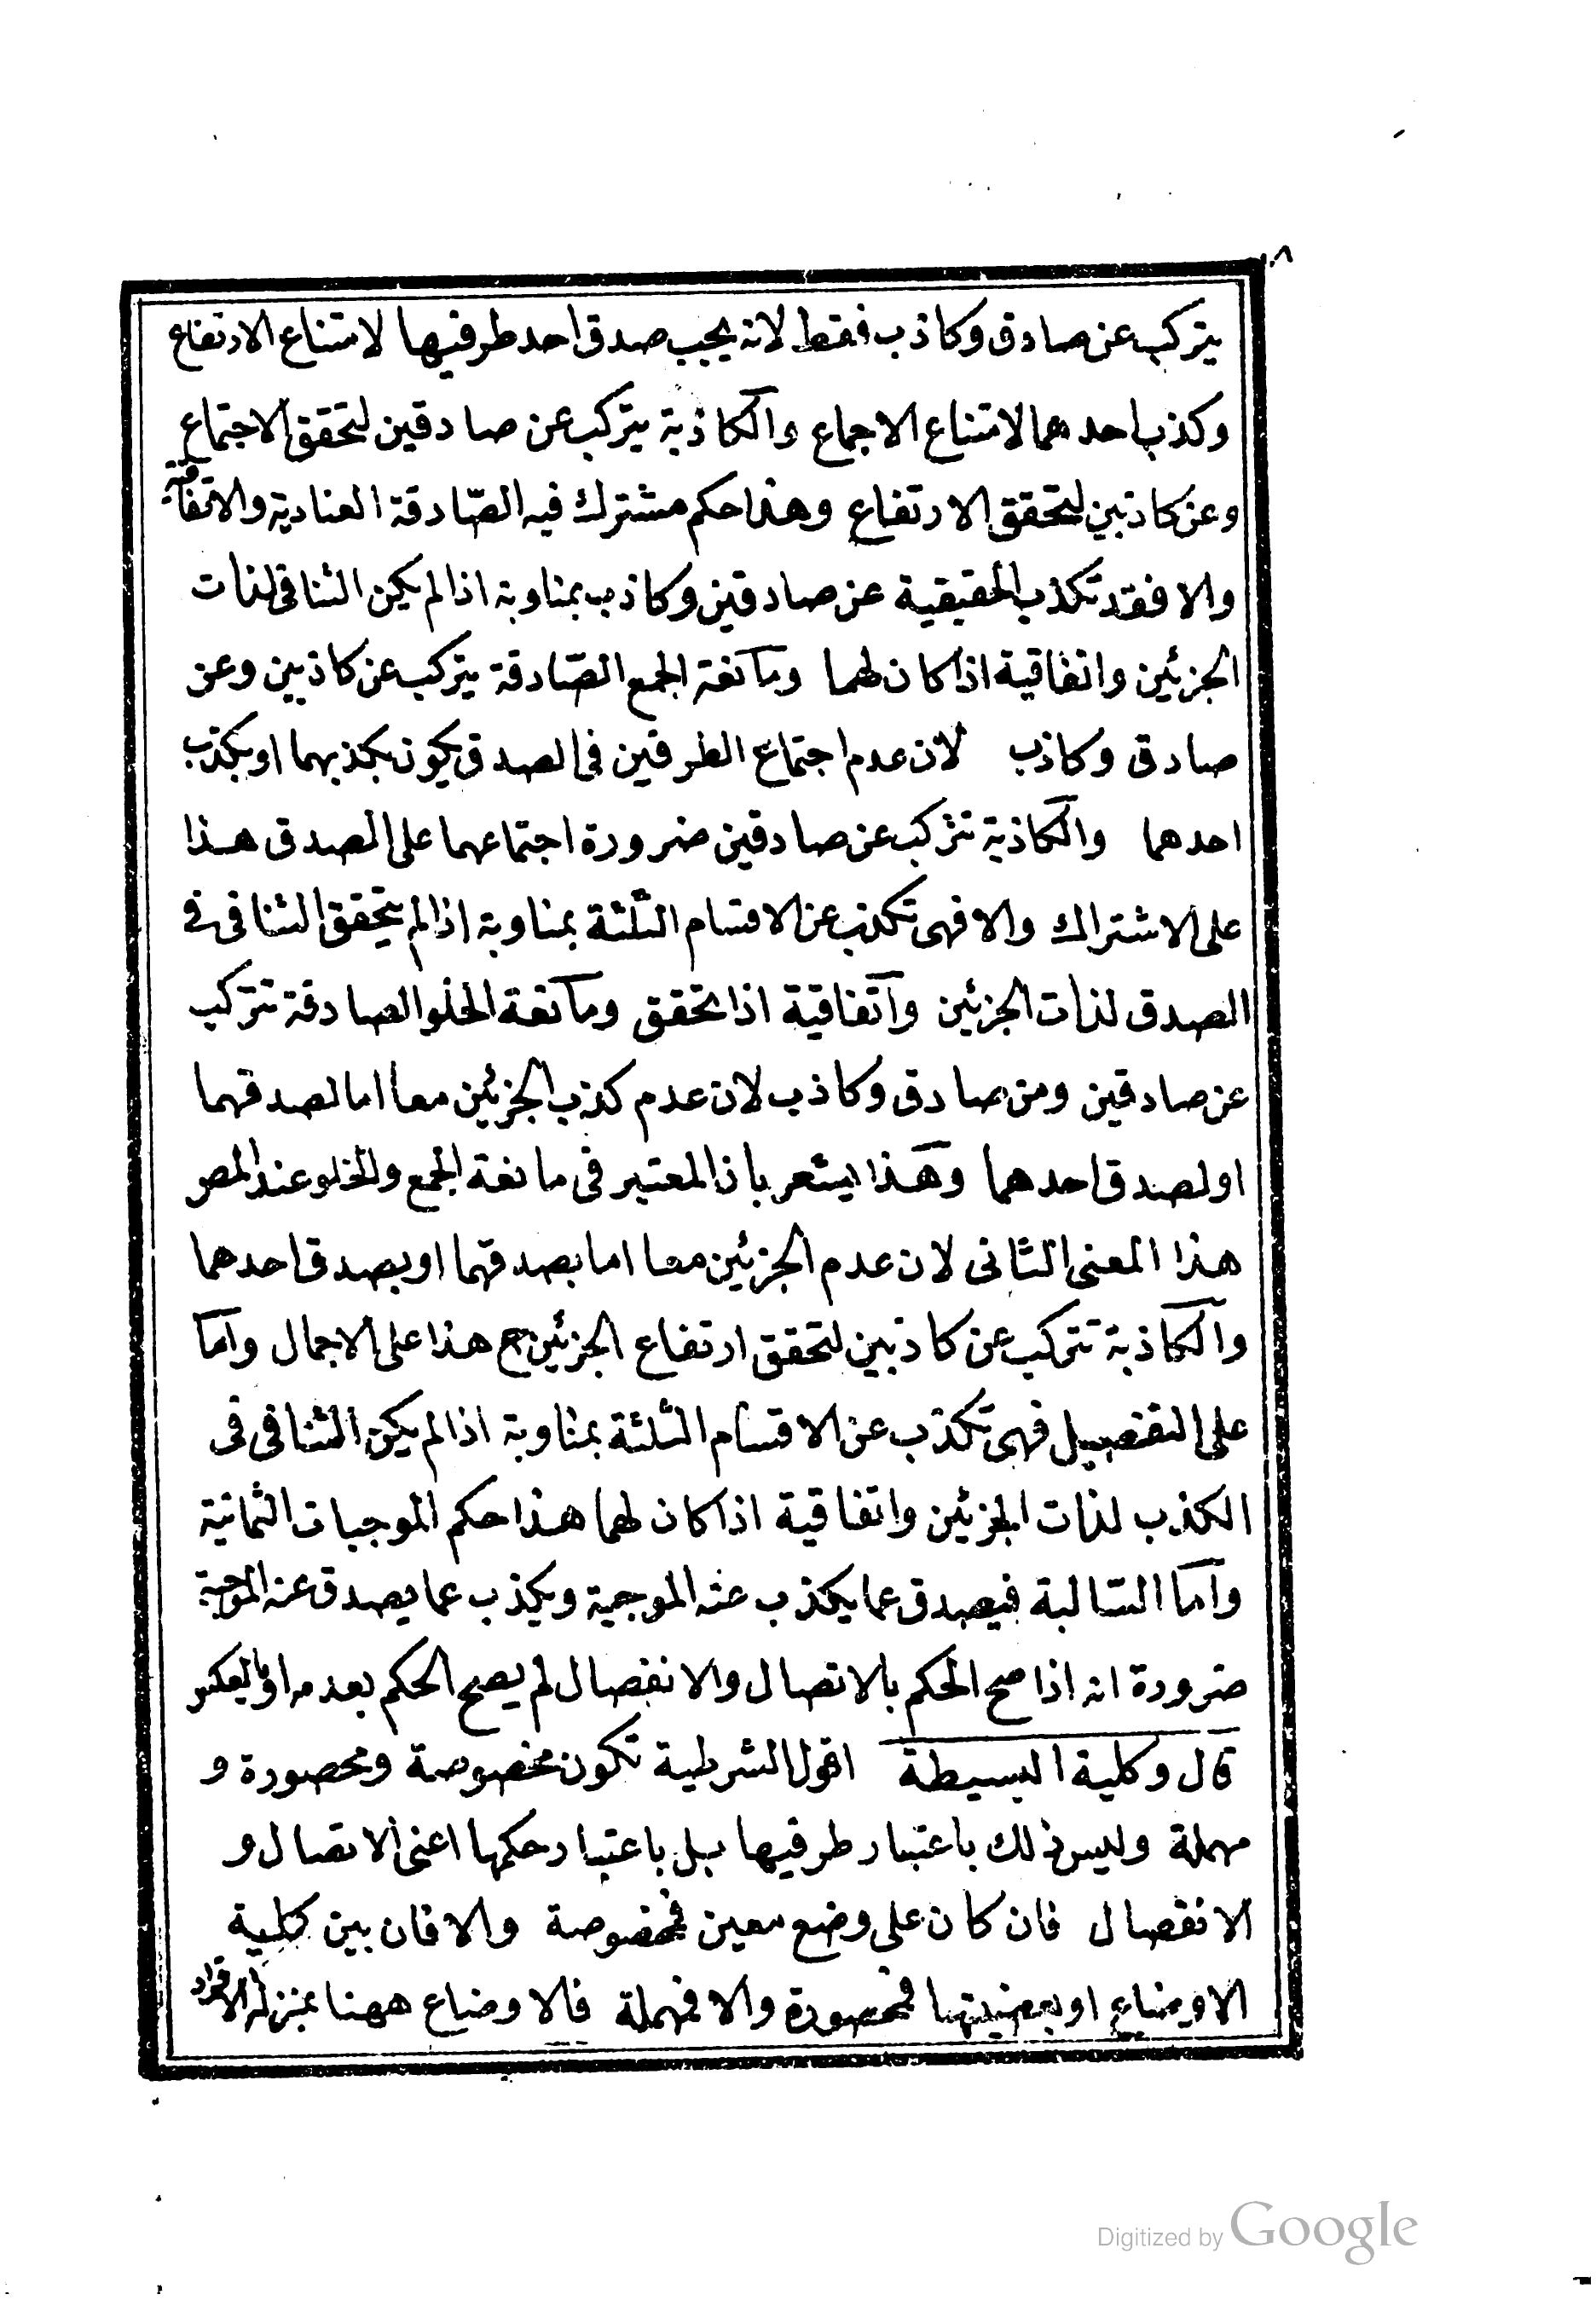 يتركب عن صادق وكاذب فقط لانه يجب صدق احد طرفيها لامتناع الارتفاع
وكذب احدهما لامتناع الاجماع والكاذبة يتركب عن صادقين لتحقق الاجتماع
وعن كاذبين لتحقق الارتفاع وهذا حكم مشترك فيه الصادقة العنادية والاتفاقية
والا فقد تكذب الحقيقية عن صادقين وكاذب بمناوبة اذا لم يكن التنافى لذات
الجزئين واتفاقية اذا كان لهما ومانعة الجمع الصادقة يتركب عن كاذبين وعن
صادق وكاذب لان عدم اجتماع الطرفين فى الصدق يكون بكذبهما او بكذب
احدهما والكاذبة تتركب عن صادقين ضرورة اجتماعهما على الصدق هذا
على الاشتراك والا فهى تكذب عن الاقسام الثلثة بمناوبة اذا لم يتحقق التنافى فى
الصدق لذات الجزئين واتفاقية اذا تحقق ومانعة الخلو الصادقة تتركب
عن صادقين ومن صادق وكاذب لان عدم كذب الجزئين معا اما لصدقهما
او لصدق احدهما وهذا يشعر بان المعتبر فى مانعة الجمع والخلو عند المصر
هذا المعنى الثانى لان عدم الجزئين معا اما بصدقهما او بصدق احدهما
والكاذبة تتركب عن كاذبين لتحقق ارتفاع الجزئين ح هذا على الاجمال واما
على التفصيل فهى تكذب عن الاقسام الثلثة بمناوبة اذا لم يكن التنافى فى
الكذب لذات الجزئين واتفاقية اذا كان لهما هذا حكم الموجبات الثمانية
واما السالبة فيصدق عما يكذب عنه الموجبة ويكذب عما يصدق عنه الموجبة
ضرورة انه اذا صح الحكم بالاتصال والانفصال لم يصح الحكم بعدمه او بالعكس
قال وكلية البسيطة اقول الشرطية تكون مخصوصة ومحصورة و
مهملة وليس ذلك باعتبار طرفيها بل باعتبار حكمها اعنى الاتصال و
الانفصال فان كان على وضع معين فمخصوصة والا فان بين كلية
الاوضاع او بعضيتها فمحصورة والا فمهملة فالاوضاع ههنا بمنزلة الافراد
Digitized by Google